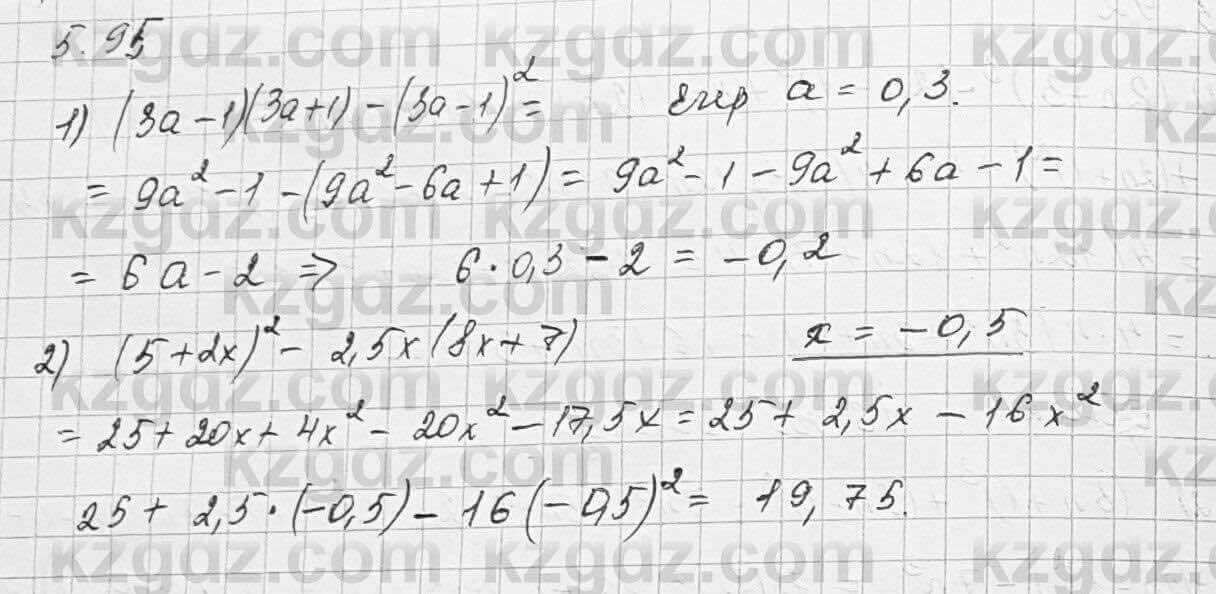 5.95
1) (3a-1)(3a+1)-(3a-1)²= Егер a = 0,3.
= 9a²-1-(9a²-6a+1)= 9a²-1-9a²+6a-1=
= 6a-2 ⇒ 6·0,3-2 = -0,2
2) (5+2x)²- 2,5x(8x+7) x = -0,5
= 25+20x+4x²-20x²-17,5x=25+2,5x-16x²
25+ 2,5·(-0,5)-16(-0,5)²= 19,75.